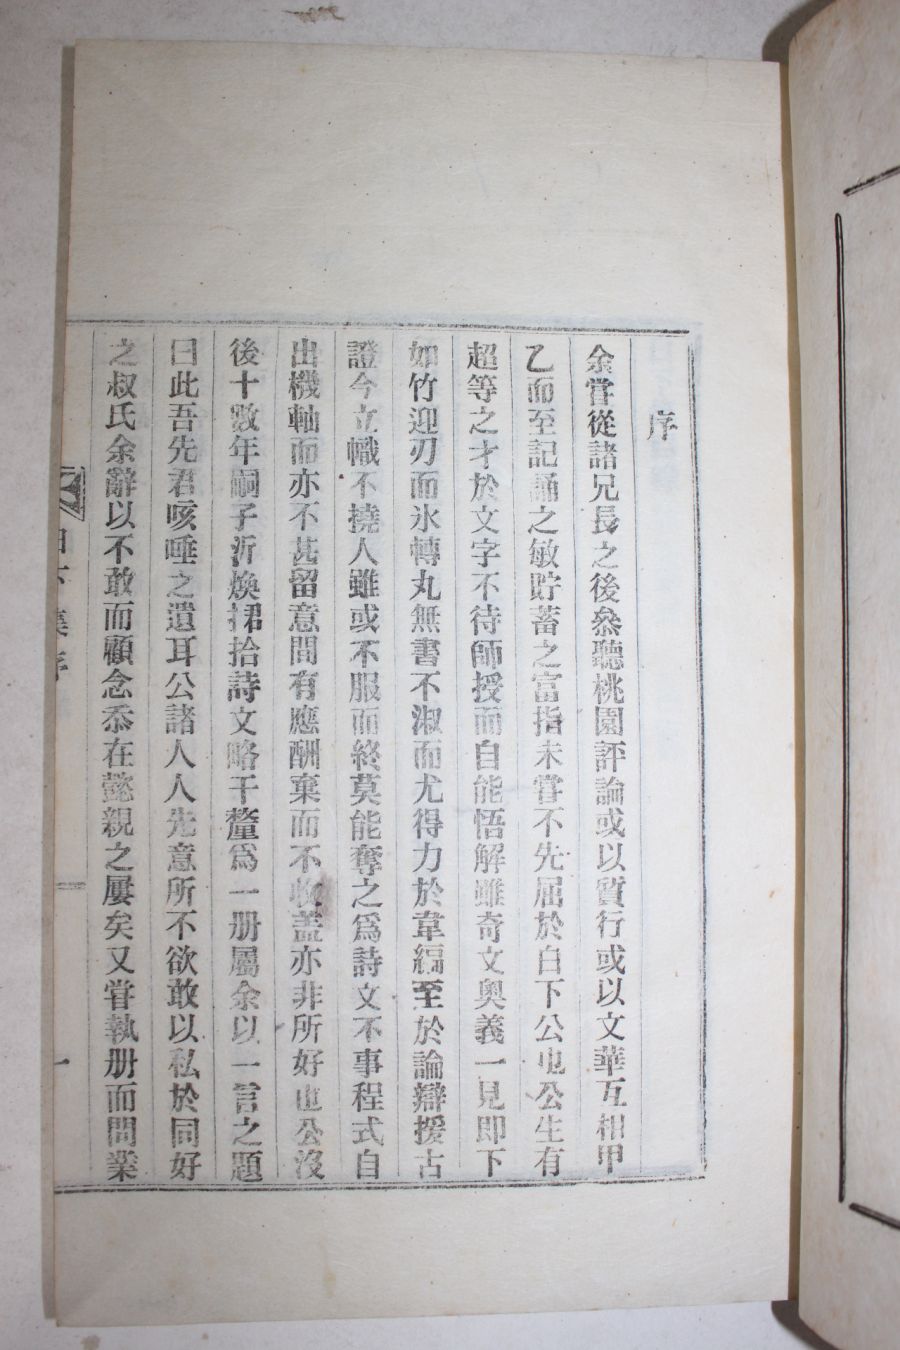 序
余嘗從諸兄長之後叅聽桃園評論或以質行或以文華互相甲
乙而至記誦之敏貯蓄之富指未嘗不先屈於白下公也公生有
超等之才於文字不待師授而自能悟解雖奇文奧義一見即下
如竹迎刃而氷轉丸無書不淑而尤得力於韋編至於論辯援古
證今立幟不撓人雖或不服而終莫能奪之爲詩文不事程式自
出機軸而亦不甚留意間有應酬棄而不收盖亦非所好也公沒
後十數年嗣子沂煥捃拾詩文略干釐爲一册屬余以一言之題
曰此吾先君咳唾之遺耳公諸人人先意所不欲敢以私於同好
之叔氏余辭以不敢而顧念忝在懿親之屢矣又嘗執册而問業
白下集序
一